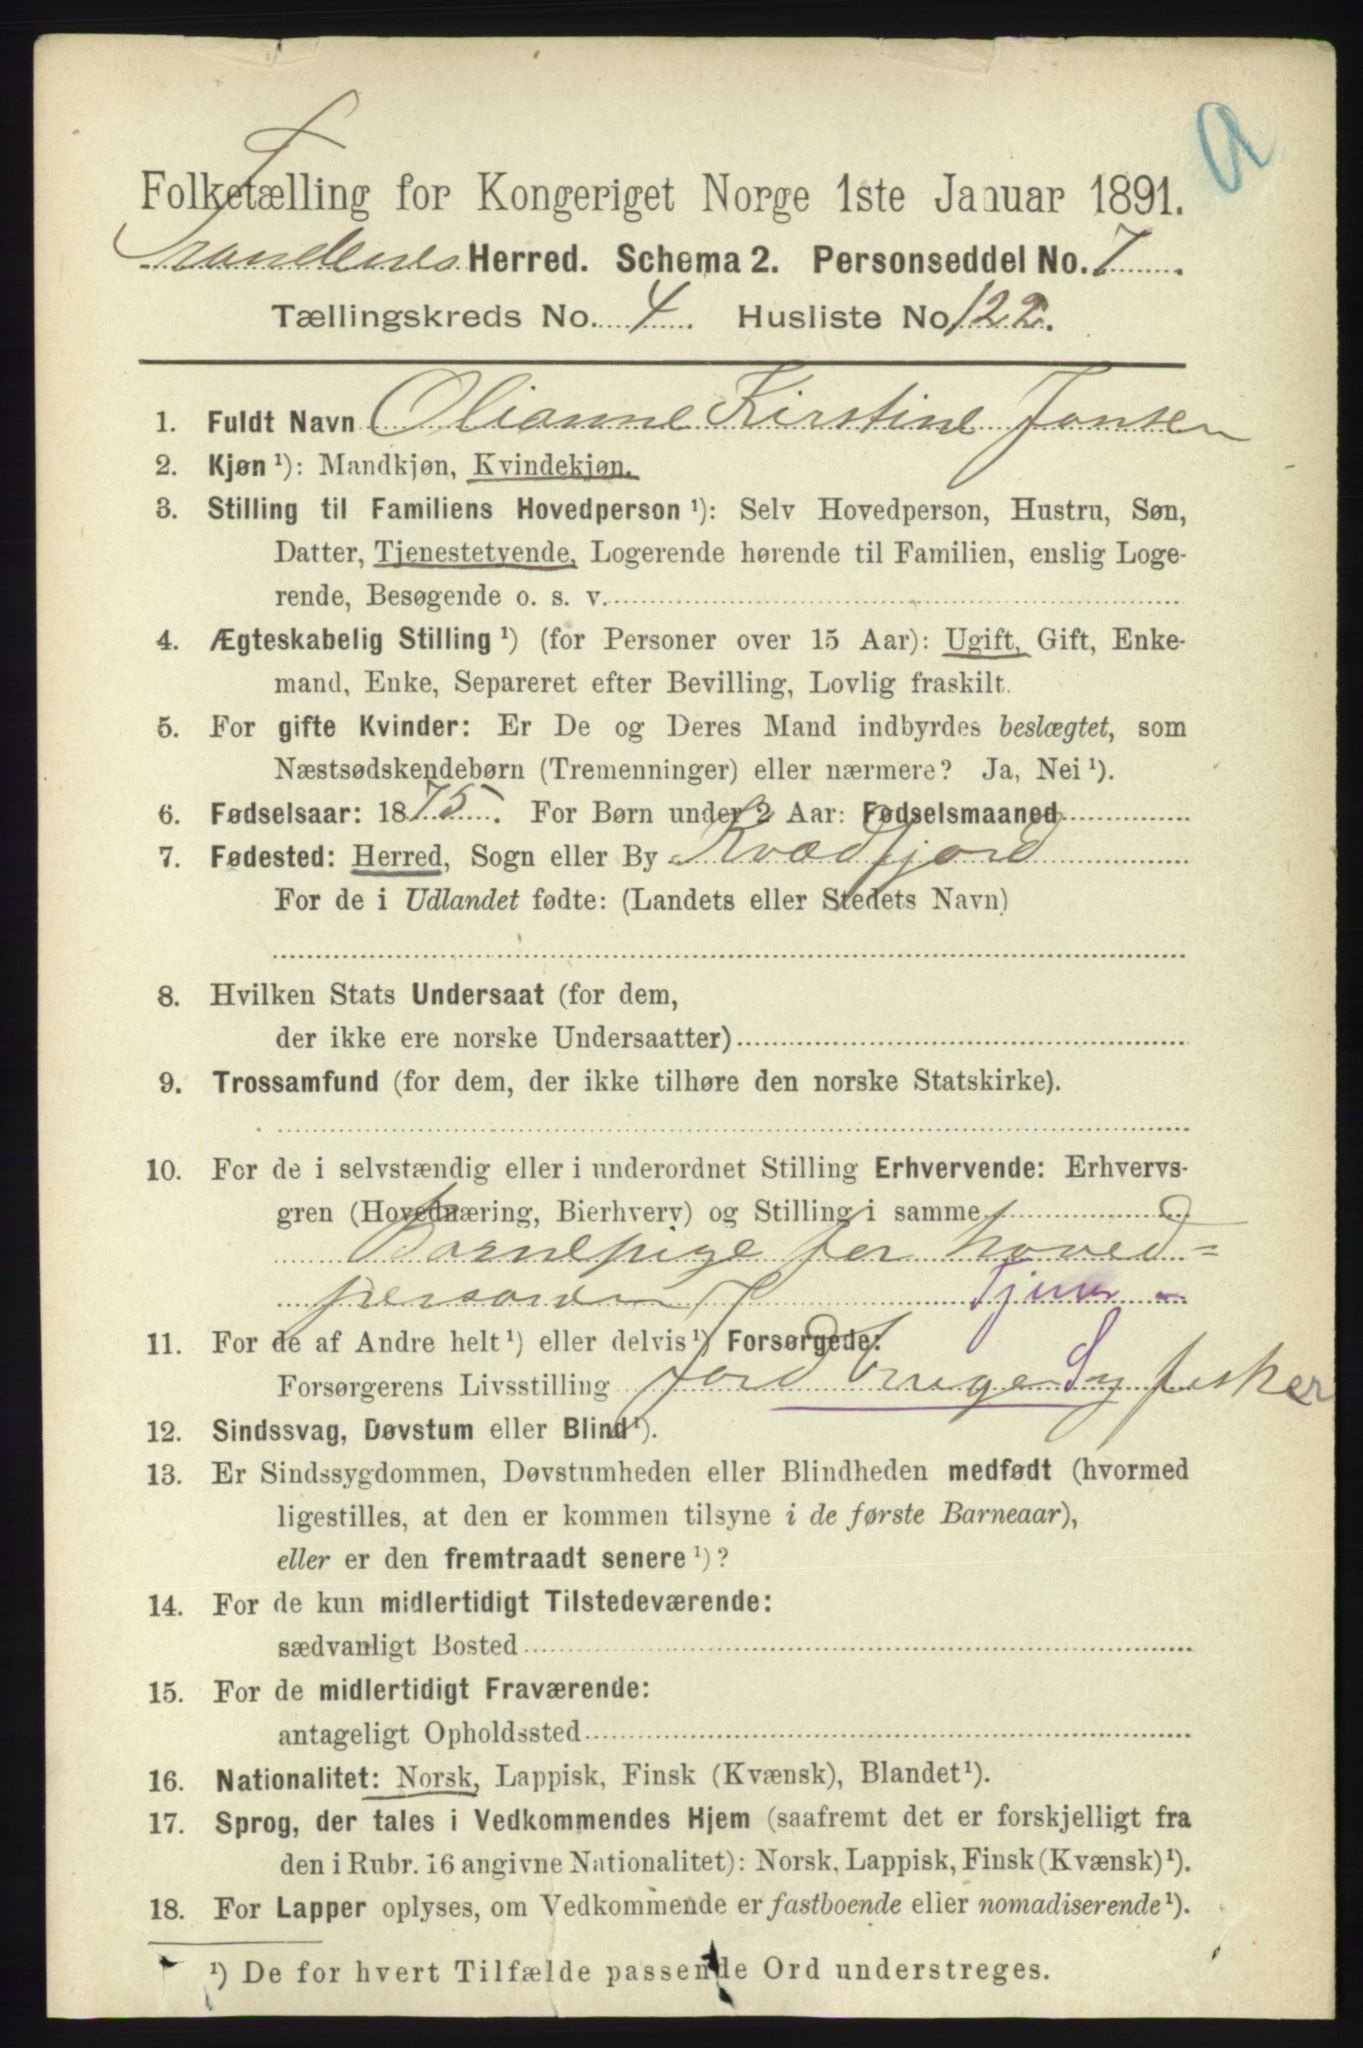 a
Folketælling for Kongeriget Norge 1ste Januar 1891.
Trondenes Herred. Schema 2. Personseddel No. 7
Tællingskreds No. 4. Husliste No 122.
1. Fuldt Navn Olianne Kirstine Jonsen
2. Kjøn ¹): Mandkjøn, Kvindekjøn.
3. Stilling til Familiens Hovedperson ¹): Selv Hovedperson, Hustru, Søn,
Datter, Tjenestetyende, Logerende hørende til Familien, enslig Loge-
rende, Besøgende o. s. v.
4. Ægteskabelig Stilling ¹) (for Personer over 15 Aar): Ugift, Gift, Enke-
mand, Enke, Separeret efter Bevilling, Lovlig fraskilt.
5. For gifte Kvinder: Er De og Deres Mand indbyrdes beslægtet, som
Næstsødskendebørn (Tremenninger) eller nærmere? Ja, Nei ¹).
6. Fødselsaar: 1875. For Børn under 2 Aar: Fødselsmaaned
7. Fødested: Herred, Sogn eller By Kvædfjord
For de i Udlandet fødte: (Landets eller Stedets Navn)
8. Hvilken Stats Undersaat (for dem,
der ikke ere norske Undersaatter)
9. Trossamfund (for dem, der ikke tilhøre den norske Statskirke).
10. For de i selvstændig eller i underordnet Stilling Erhvervende: Erhvervs-
gren (Hovednæring, Bierhverv) og Stilling i samme
Barnepige for hoved=
personen Tjene
11. For de af Andre helt ¹) eller delvis ¹) Forsørgede:
Forsørgerens Livsstilling Jordbruger og fisker
12. Sindssvag, Døvstum eller Blind ¹).
13. Er Sindssygdommen, Døvstumheden eller Blindheden medfødt (hvormed
ligestilles, at den er kommen tilsyne i de første Barneaar),
eller er den fremtraadt senere ¹)?
14. For de kun midlertidigt Tilstedeværende:
sædvanligt Bosted
15. For de midlertidigt Fraværende:
antageligt Opholdssted
16. Nationalitet: Norsk, Lappisk, Finsk (Kvænsk), Blandet ¹).
17. Sprog, der tales i Vedkommendes Hjem (saafremt det er forskjelligt fra
den i Rubr. 16 angivne Nationalitet): Norsk, Lappisk, Finsk (Kvænsk) ¹).
18. For Lapper oplyses, om Vedkommende er fastboende eller nomadiserende ¹).
¹) De for hvert Tilfælde passende Ord understreges.